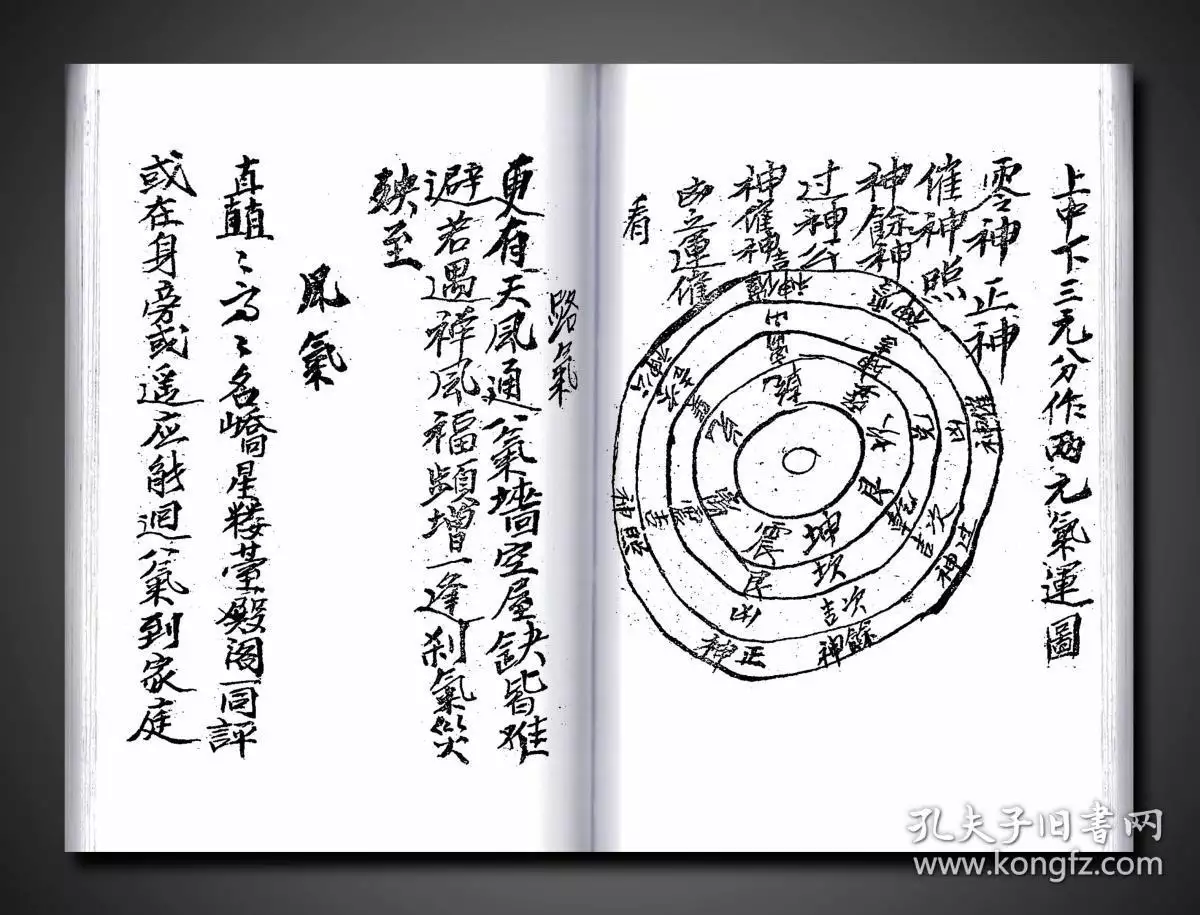 上中下三元分作兩元氣運圖
零神正神
催神照
神餘神
过神公
神催神吉
凶立運催
看
坤
震
坎
艮
吉次
凶
神正
神餘
神过
神照
路氣
更有天風通八氣墻空屋缺皆难
避若遇祥風福頻增一逢刹氣災
殃至
風氣
直矗〻高〻名嶠星楼臺殿阁同評
或在身旁或遥应能迴八氣到家庭
孔夫子旧书网
www.kongfz.com